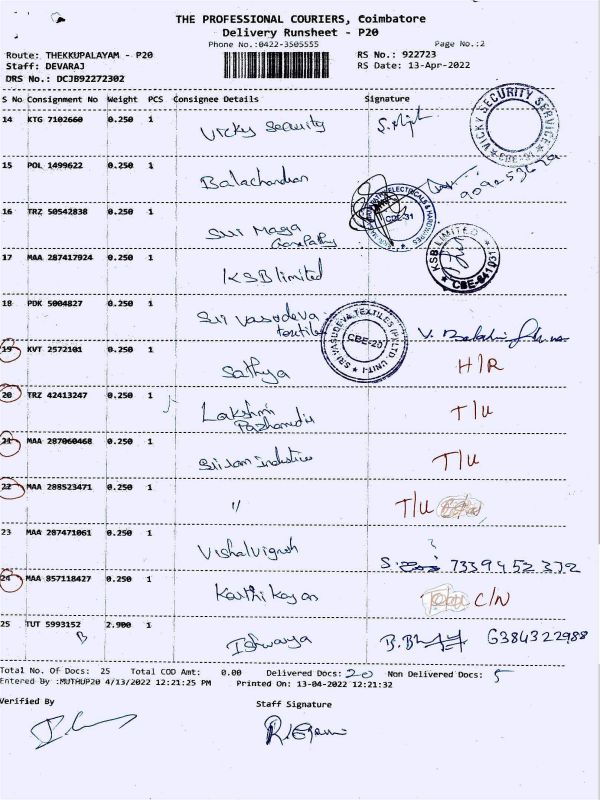 THE PROFESSIONAL COURIERS, Coimbatore
Delivery Runsheet - P20
Phone No.:0422-3505555
Page No.:2
Route: THEKKUPALAYAM - P20
RS No.: 922723
Staff: DEVARAJ
RS Date: 13-Apr-2022
DRS No.: DCJB92272302
S No Consignment No Weight PCS Consignee Details Signature
14 KTG 7102660 0.250 1 Vicky Security
VICKY SECURITY SERVICE
CBE-31
15 POL 1499622 0.250 1 Balachandran
16 TRZ 50542838 0.250 1 Sri Maga
Ganapathy
ELECTRICALS & HARDWARES
CBE-31
17 MAA 287417924 0.250 1 KSB limited
KSB LIMITED
CBE-641031
18 PDK 5004827 0.250 1 Sri Vasudeva
textiles
SRI VASUDEVA TEXTILES (P) LTD. UNIT-I
CBE-20
19 KVT 2572101 0.250 1 Sathya H/R
20 TRZ 42413247 0.250 1 Lakshmi T/U
21 MAA 287060468 0.250 1 Sriram industries T/U
22 MAA 288523471 0.250 1 " T/U
23 MAA 287471061 0.250 1 Vishalvignesh S. 7339452372
24 MAA 857118427 0.250 1 Karthikeyan C/N
25 TUT 5993152 2.900 1 Ishwarya 6384322988
B
Total No. Of Docs: 25 Total COD Amt: 0.00 Delivered Docs: 20 Non Delivered Docs: 5
Entered By :MUTHUP20 4/13/2022 12:21:25 PM Printed On: 13-04-2022 12:21:32
Verified By
Staff Signature